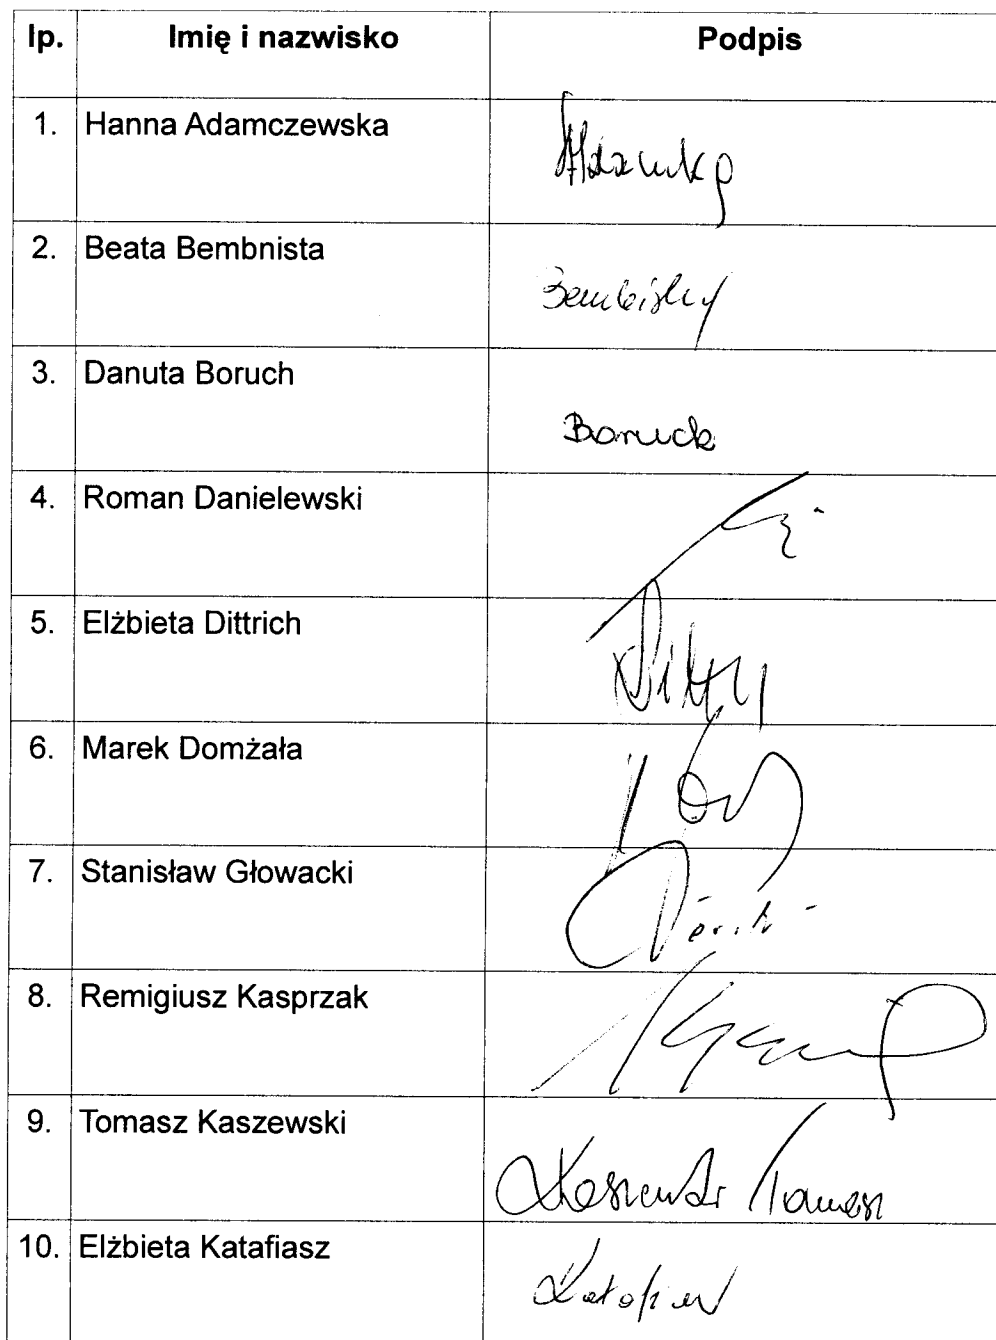 lp. Imię i nazwisko Podpis
1. Hanna Adamczewska
2. Beata Bembnista
3. Danuta Boruch Boruch
4. Roman Danielewski
5. Elżbieta Dittrich
6. Marek Domżała
7. Stanisław Głowacki
8. Remigiusz Kasprzak
9. Tomasz Kaszewski Kaszewski Tomasz
10. Elżbieta Katafiasz